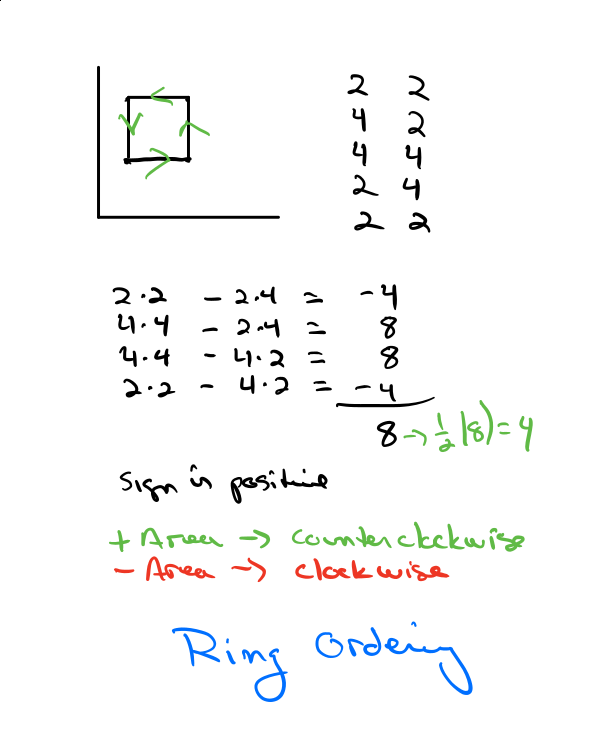 2 2
4 2
4 4
2 4
2 2
2·2 - 2·4 = -4
4·4 - 2·4 = 8
4·4 - 4·2 = 8
2·2 - 4·2 = -4
8 → 1/2 |8| = 4
Sign is positive
+ Area → counterclckwise
- Area → clockwise
Ring Ordering